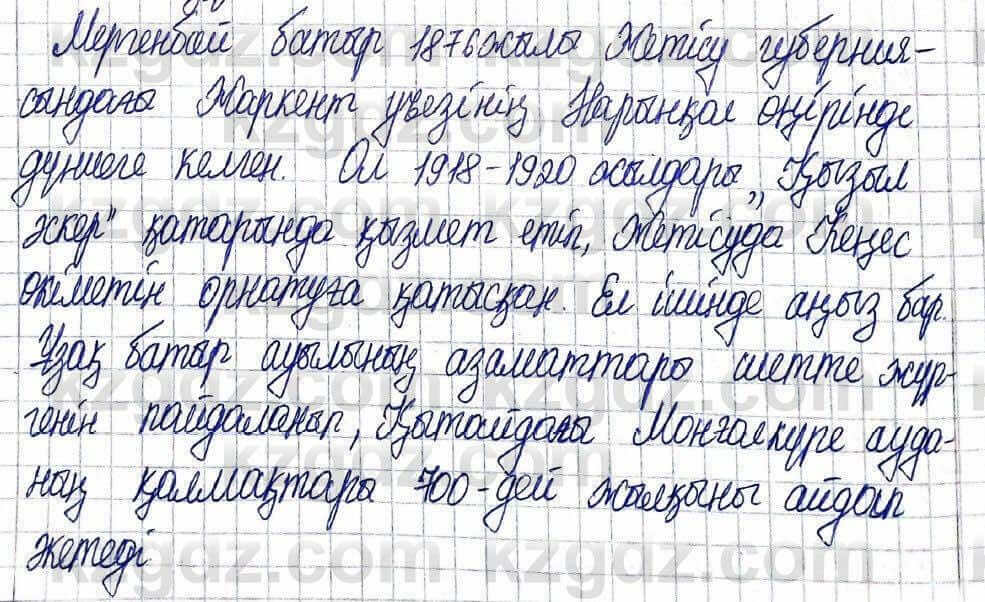 Мергенбай батыр 1876 жылы Жетісу губерния-
сындағы Жаркент уезінің Нарынқол өңірінде
дүниеге келген. Ол 1918-1920 жылдары „Қызыл
әскер" қатарында қызмет етіп, Жетісуда Кеңес
өкіметін орнатуға қатысқан. Ел ішінде аңыз бар.
Ұзақ батыр ауылының азаматтары шетте жүр-
генін пайдаланып, Қытайдағы Монғолкүре ауда-
ның қалмақтары 700-дей жылқыны айдап
жетеді
kzgdz.com